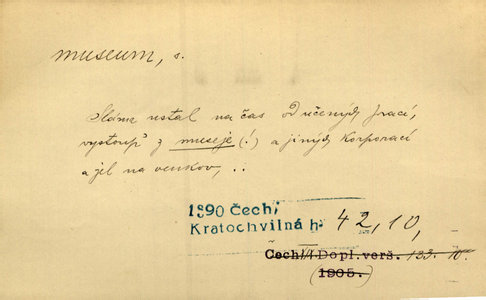 museum, s.
Sláma ustal na čas od učených prací,
vystoup' z museje (!) a jiných korporací
a jel na venkov, ..
1890 Čech,
Kratochvilná h. 42, 10,
Čech I/1 Dopl. verš. 133. 10.
(1905.)